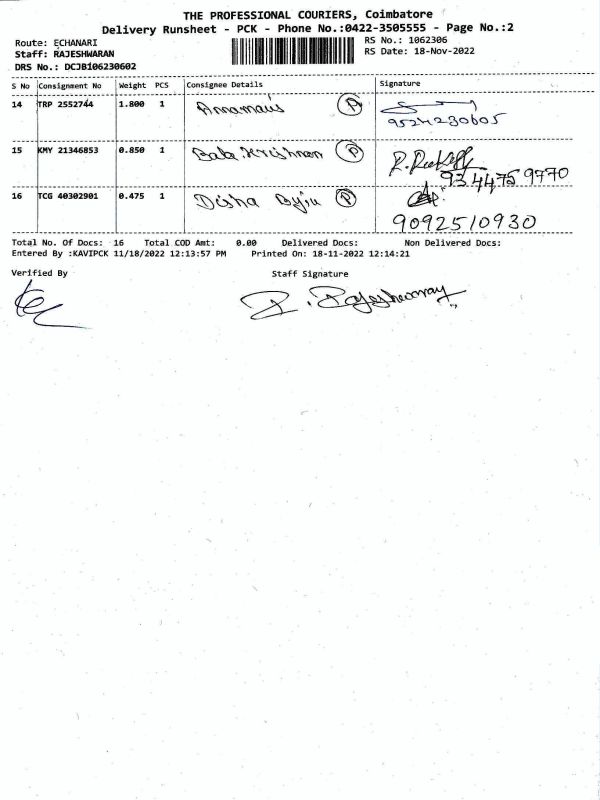 THE PROFESSIONAL COURIERS, Coimbatore
Delivery Runsheet - PCK - Phone No.:0422-3505555 - Page No.:2
Route: ECHANARI
Staff: RAJESHWARAN
DRS No.: DCJB106230602
RS No.: 1062306
RS Date: 18-Nov-2022
S No Consignment No Weight PCS Consignee Details Signature
14 TRP 2552744 1.800 1 P
9524230605
15 KMY 21346853 0.850 1 Bala.Krishnan P
9344759770
16 TCG 40302901 0.475 1 Disha P
9092510930
Total No. Of Docs: 16 Total COD Amt: 0.00 Delivered Docs: Non Delivered Docs:
Entered By :KAVIPCK 11/18/2022 12:13:57 PM Printed On: 18-11-2022 12:14:21
Verified By Staff Signature